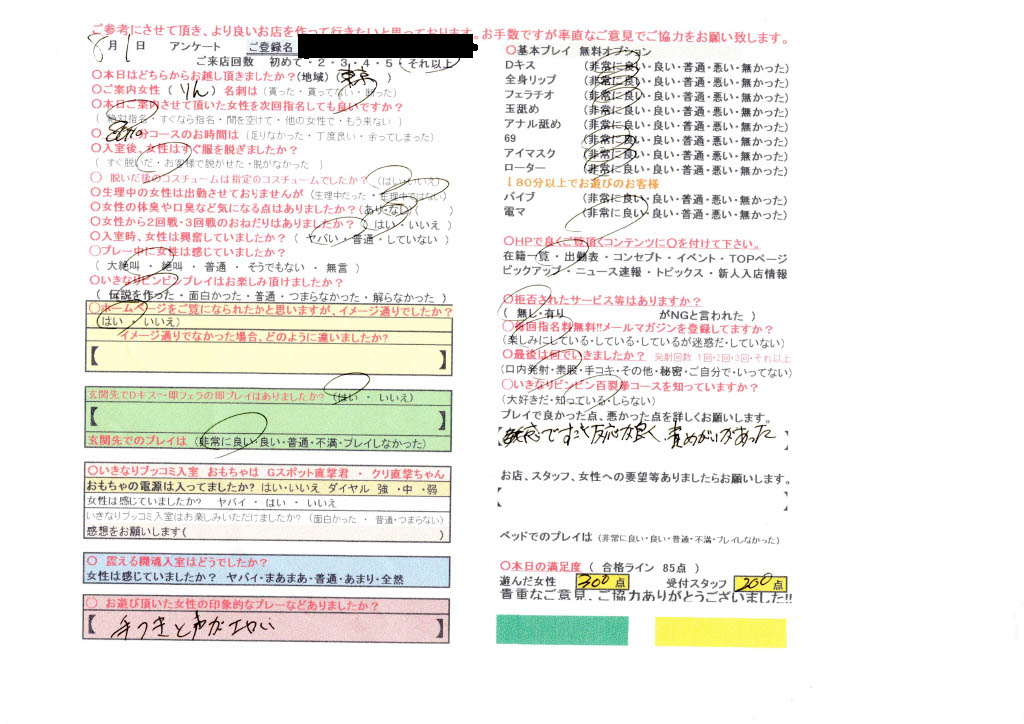 ご参考にさせて頂き、より良いお店を作って行きたいと思っております。お手数ですが率直なご意見でご協力をお願い致します。
8月1日 アンケート ご登録名
ご来店回数 初めて・2・3・4・5・それ以上
〇本日はどちらからお越し頂きましたか?(地域)(東京)
〇ご案内女性 (りん) 名刺は (貰った・貰ってない・断った)
〇本日ご案内させて頂いた女性を次回指名しても良いですか?
(絶対指名・すぐなら指名・間を空けて・他の女性で・もう来ない)
〇 分コースのお時間は (足りなかった・丁度良い・余ってしまった)
〇入室後、女性はすぐ服を脱ぎましたか?
(すぐ脱いだ・お客様で脱がせた・脱がなかった )
〇 脱いだ後のコスチュームは指定のコスチュームでしたか? (はい・いいえ)
〇生理中の女性は出勤させておりませんが (生理中だった・生理中ではない)
〇女性の体臭や口臭など気になる点はありましたか?(あり・ない( )
〇女性から2回戦・3回戦のおねだりはありましたか? ( はい・いいえ )
〇入室時、女性は興奮していましたか? ( ヤバい・普通・していない )
〇プレー中に女性は感じていましたか?
( 大絶叫 ・ 絶叫 ・ 普通 ・ そうでもない ・ 無言 )
〇いきなりビンビンプレイはお楽しみ頂けましたか?
( 伝説を作った・面白かった・普通・つまらなかった・解らなかった )
〇ホームページをご覧になられたかと思いますが、イメージ通りでしたか?
(はい ・ いいえ)
イメージ通りでなかった場合、どのように違いましたか?
【 】
玄関先でDキス〜即フェラの即プレイはありましたか? (はい ・ いいえ)
【 】
玄関先でのプレイは (非常に良い・良い・普通・不満・プレイしなかった)
〇いきなりブッコミ入室 おもちゃは Gスポット直撃君 ・ クリ直撃ちゃん
おもちゃの電源は入ってましたか? はい・いいえ ダイヤル 強 ・中 ・弱
女性は感じていましたか? ヤバイ ・ はい ・ いいえ
いきなりブッコミ入室はお楽しみいただけましたか? (面白かった ・ 普通・つまらない)
感想をお願いします( )
〇 震える機魂入室はどうでしたか?
女性は感じていましたか? ヤバイ・まあまあ・普通・あまり・全然
〇 お遊び頂いた女性の印象的なプレーなどありましたか?
【 手つきと声がエロい 】
〇基本プレイ 無料オプション
Dキス (非常に良い・良い・普通・悪い・無かった)
全身リップ (非常に良い・良い・普通・悪い・無かった)
フェラチオ (非常に良い・良い・普通・悪い・無かった)
玉舐め (非常に良い・良い・普通・悪い・無かった)
アナル舐め (非常に良い・良い・普通・悪い・無かった)
69 (非常に良い・良い・普通・悪い・無かった)
アイマスク (非常に良い・良い・普通・悪い・無かった)
ローター (非常に良い・良い・普通・悪い・無かった)
【80分以上でお遊びのお客様
バイブ (非常に良い・良い・普通・悪い・無かった)
電マ (非常に良い・良い・普通・悪い・無かった)
〇HPで良くご覧頂くコンテンツに〇を付けて下さい。
在籍一覧・出勤表・コンセプト・イベント・TOPページ
ピックアップ・ニュース速報・トピックス・新人入店情報
〇拒否されたサービス等はありますか?
( 無し・有り がNGと言われた )
〇毎回指名料無料!!メールマガジンを登録してますか?
(楽しみにしている・している・しているが迷惑だ・していない)
〇最後は何でいきましたか? 発射回数 1回・2回・3回・それ以上
(口内発射・素股・手コキ・その他・秘密・ご自分で・いってない)
〇いきなりビンビン百裂拳コースを知っていますか?
(大好きだ・知っている・しらない)
プレイで良かった点、悪かった点を詳しくお願いします。
敏感ですごく反応が良く、責めがいがあった
お店、スタッフ、女性への要望等ありましたらお願いします。
ベッドでのプレイは (非常に良い・良い・普通・不満・プレイしなかった)
〇本日の満足度 ( 合格ライン 85点 )
遊んだ女性 300点 受付スタッフ 200点
貴重なご意見、ご協力ありがとうございました!!